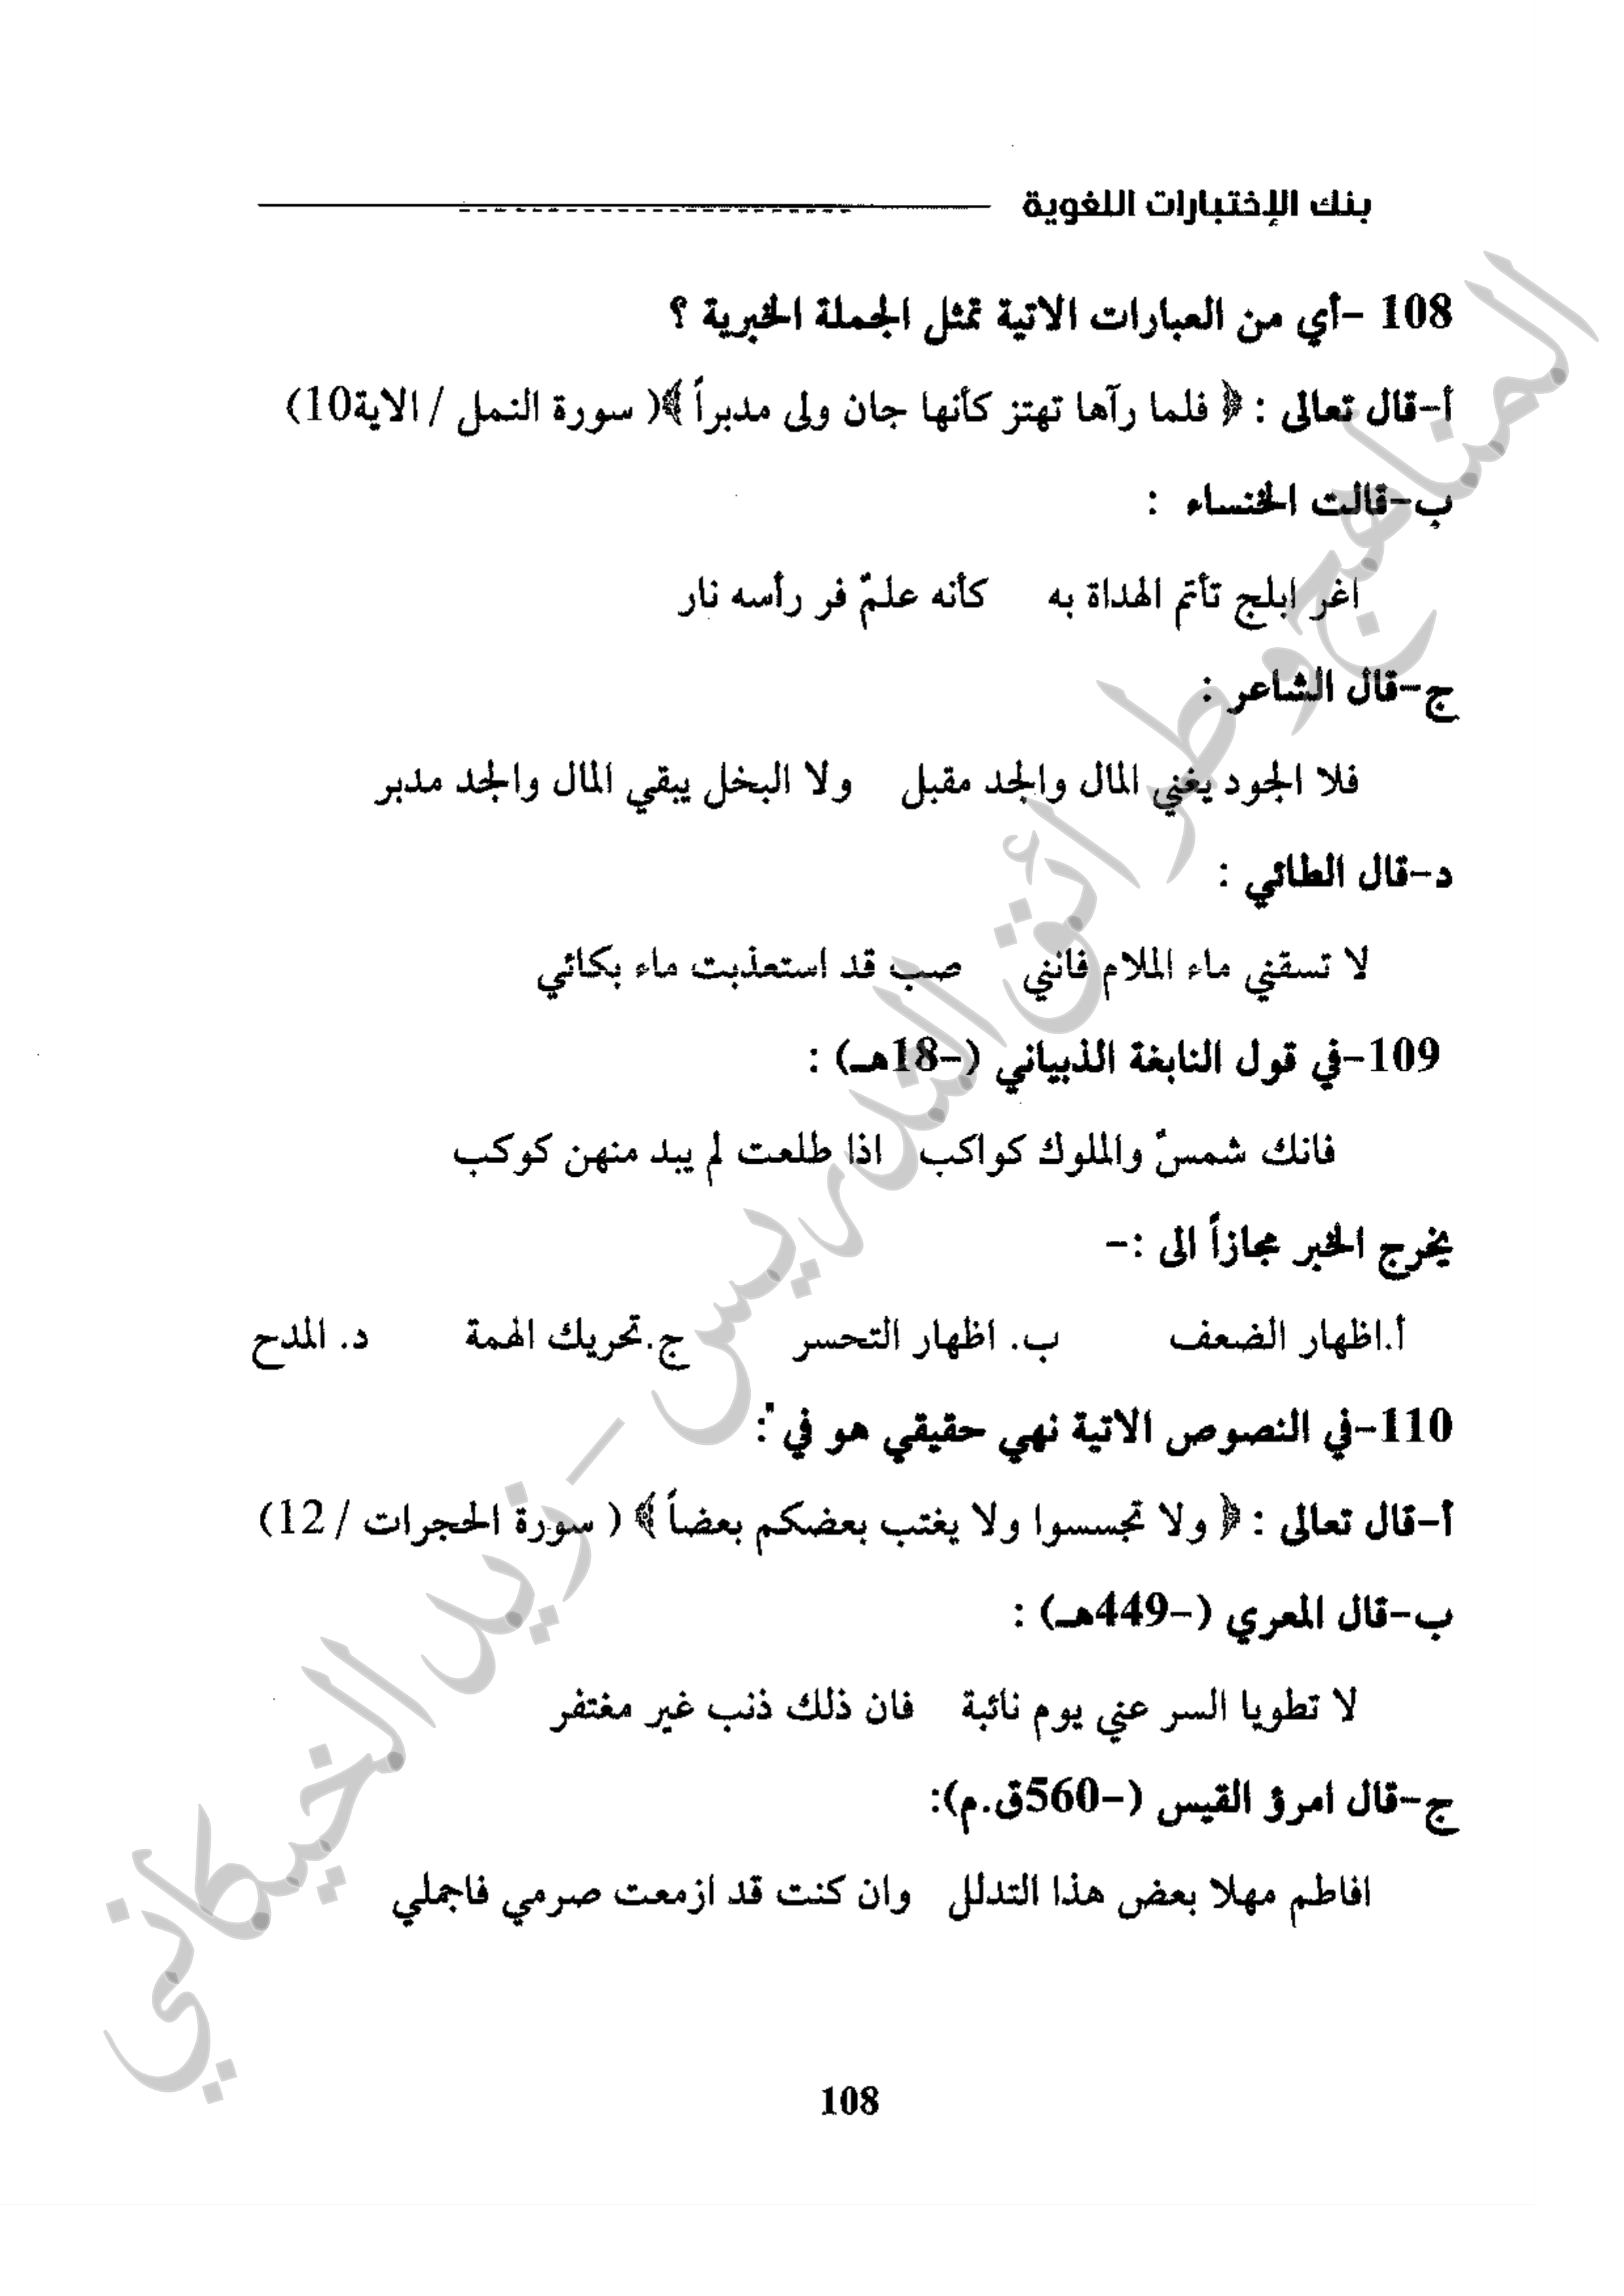 بنك الإختبارات اللغوية
108 -أي من العبارات الاتية تمثل الجملة الخبرية ؟
أ-قال تعالى : ﴿ فلما رآها تهتز كأنها جان ولى مدبراً ﴾( سورة النمل / الاية10)
ب-قالت الخنساء :
اغر ابلج تأتم الهداة به كأنه علمٌ فر رأسه نار
ج-قال الشاعر :
فلا الجود يغني المال والجد مقبل ولا البخل يبقي المال والجد مدبر
د-قال الطائي :
لا تسقني ماء الملام فانني صب قد استعذبت ماء بكائي
109-في قول النابغة الذبياني (-18هـ) :
فانك شمسٌ والملوك كواكب اذا طلعت لم يبد منهن كوكب
يخرج الخبر مجازاً الى :-
أ.اظهار الضعف ب. اظهار التحسر ج.تحريك الهمة د. المدح
110-في النصوص الاتية نهي حقيقي هو في :
أ-قال تعالى : ﴿ ولا تجسسوا ولا يغتب بعضكم بعضاً ﴾ ( سورة الحجرات / 12)
ب-قال المعري (-449هـ) :
لا تطويا السر عني يوم نائبة فان ذلك ذنب غير مغتفر
ج-قال امرؤ القيس (-560ق.م):
افاطم مهلا بعض هذا التدلل وان كنت قد ازمعت صرمي فاجملي
108
المناهج وطرائق التدريس - زيد الخيكاني